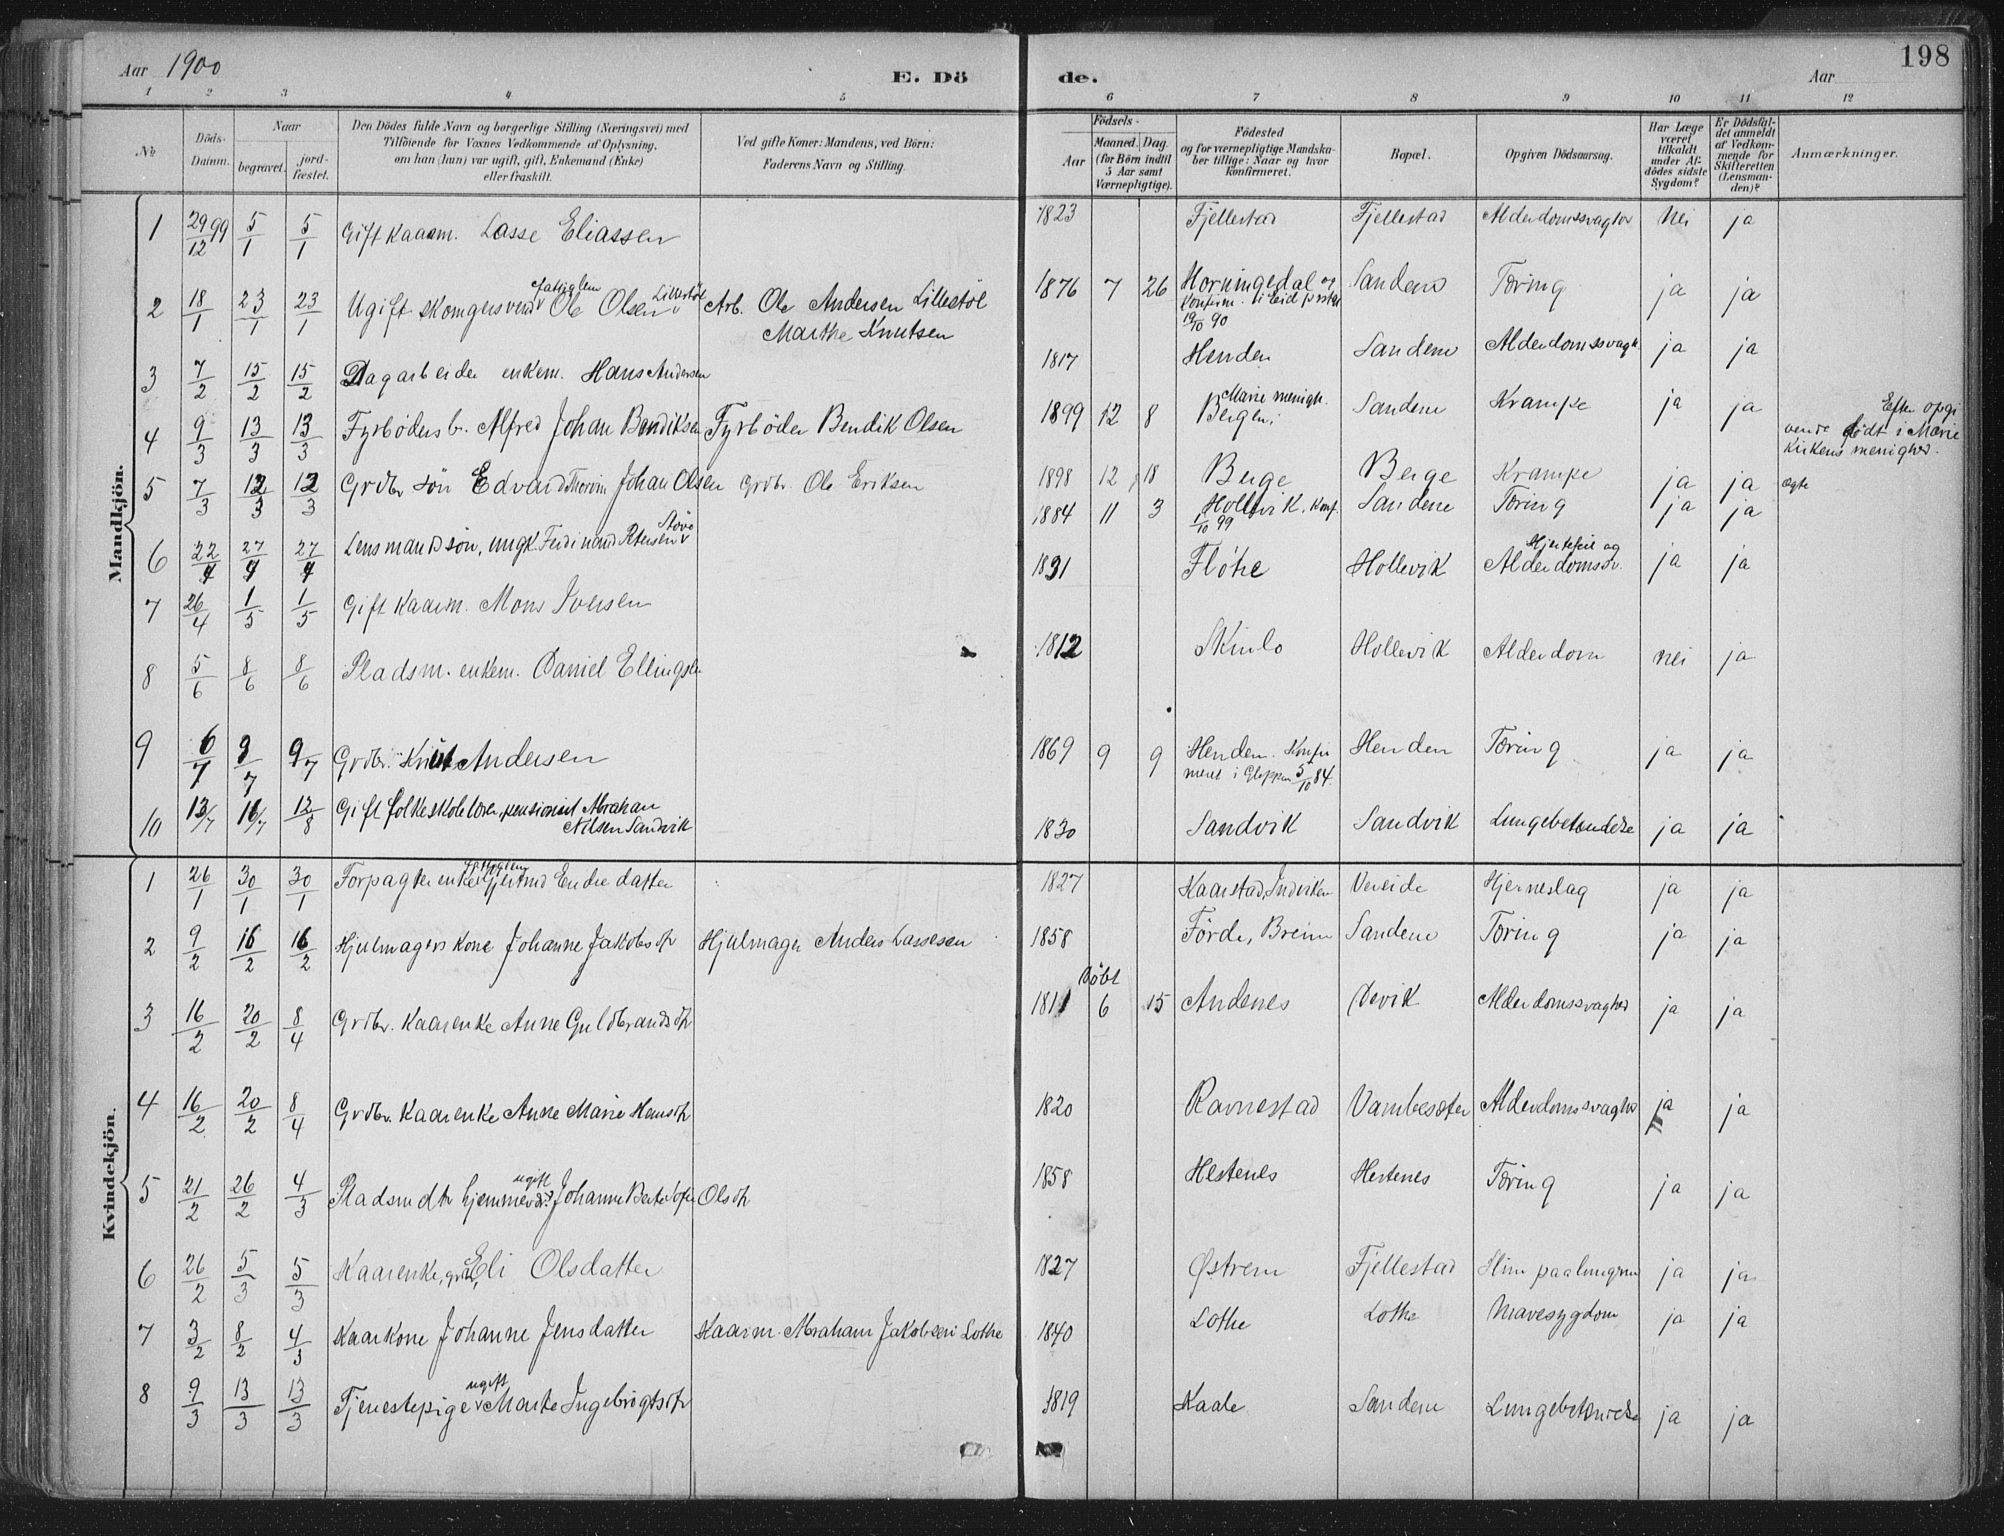 198
Aar 1900 E. Dö de. Aar
1 2 3 4 5 6 7 8 9 10 11 12
No
Döds-Datum.
Naar
begravet.
jord-fæstet.
Den Dödes fulde Navn og borgerlige Stilling (Næringsvei) med
Tilföiende for Voxnes Vedkommende af Oplysning,
om han (hun) var ugift, gift, Enkemand (Enke)
eller fraskilt.
Ved gifte Koner: Mandens, ved Börn:
Faderens Navn og Stilling.
Födsels-
Aar
Maaned.
Dag.
(for Börn indtil
5 Aar samt
Værnepligtige).
Födested
og for værnepligtige Mandska-
ber tillige: Naar og hvor
konfirmeret.
Bopæl.
Opgiven Dödsaarsag.
Har Læge
været
tilkaldt
under Af-
dödes sidste
Sygdom?
Er Dödsfal-
det anmeldt
af Vedkom-
mende for
Skifteretten
(Lensman-
den)?
Anmærkninger.
Mandkjön.
1 29/12 99 5/1 5/1 Gift Kaarm. Lasse Eliassen 1823 Fjellestad Fjellestad Alderdomssvaghed Nei ja
2 18/1 23/1 23/1 Ugift skomgersvend fattiglem Ole Olsen Lillestöl Arb. Ole Andersen Lillestöl 1876 7 26 Horningedal og Sandene Tæring ja ja
Marthe Knutsen konfirm. i Eid prstgj 19/10 90
3 7/2 15/2 15/2 Dagarbeider enkem. Hans Andersen 1817 Henden Sandene Alderdomssvagh ja ja
4 9/3 13/3 13/3 Fyrböders b. Alfred Johan Bendiksen Fyrböder Bendik Olsen 1899 12 8 Marie menigh. Bergen. Sandene Krampe ja ja Efter opgi
vende födt i Marie
kirkens menighed.
5 7/3 12/3 12/3 Grdbr sön Edvard Thorvin Johan Olsen Grdbr. Ole Eriksen 1898 12 18 Berge Berge Krampe ja ja ægte
6 22/4 27/4 27/4 Lensmandssön, ungk. Ferdinand Petersen 1884 11 3 Hollevik, Konf. 1/10 99 Sandene Tæring ja ja
7 26/4 1/5 1/5 Gift Kaarm. Mons Iversen 1831 Flöhe Hollevik Hjertefeil og Alderdomssv. ja ja
8 5/6 8/6 8/6 Pladsm. enkem. Daniel Ellingsen 1812 Skinlo Hollevik Alderdom nei ja
9 6/7 9/7 9/7 Grdbr. Knut Andersen 1869 9 9 Henden. Konfir Henden Tæring ja ja
meret i Gloppen 5/10 84.
10 13/7 16/7 12/8 Gift folkeskolelærer, pensionist Abraham
Nilsen Sandvik 1830 Sandvik Sandvik Lungebetændelse ja ja
Kvindekjön.
1 26/1 30/1 30/1 Forpagterenke fattiglem Gjertrud Endredatter 1827 Kaarstad, Indviken Vereide Hjerneslag ja ja
2 9/2 16/2 16/2 Hjulmagers Kone Johanne Jakobsdtr Hjulmager Anders Lassesen 1858 Förde, Breim Sandene Tæring ja ja
3 16/2 20/2 8/4 Grdbr. Kaarenke Anne Guldbrandsdtr 1811 Döbt 6 15 Andenes Devik Alderdomssvaghed ja ja
4 16/2 20/2 8/4 Grdbr. Kaarenke Anne Marie Hansdtr 1820 Ravnestad Vambesæter Alderdomssvaghed ja ja
5 21/2 26/2 4/3 Pladsmdtr hjemmevær. ugift Johanne Berte Sofie Olsdtr 1858 Hestenes Hestenes Tæring ja ja
6 26/2 5/3 5/3 Kaarenke, grdbr, Eli Olsdatter 1827 Østrem Fjellestad Slim paa lungerne ja ja
7 3/2 8/2 4/3 Kaarkone Johanne Jensdatter Kaarm. Abraham Jakobsen Lothe 1840 Lothe Lothe Mavesygdom ja ja
8 9/3 13/3 13/3 Tjenestepige ugift Marte Ingebrigtsdtr 1819 Kaale Sandene Lungebetændelse ja ja